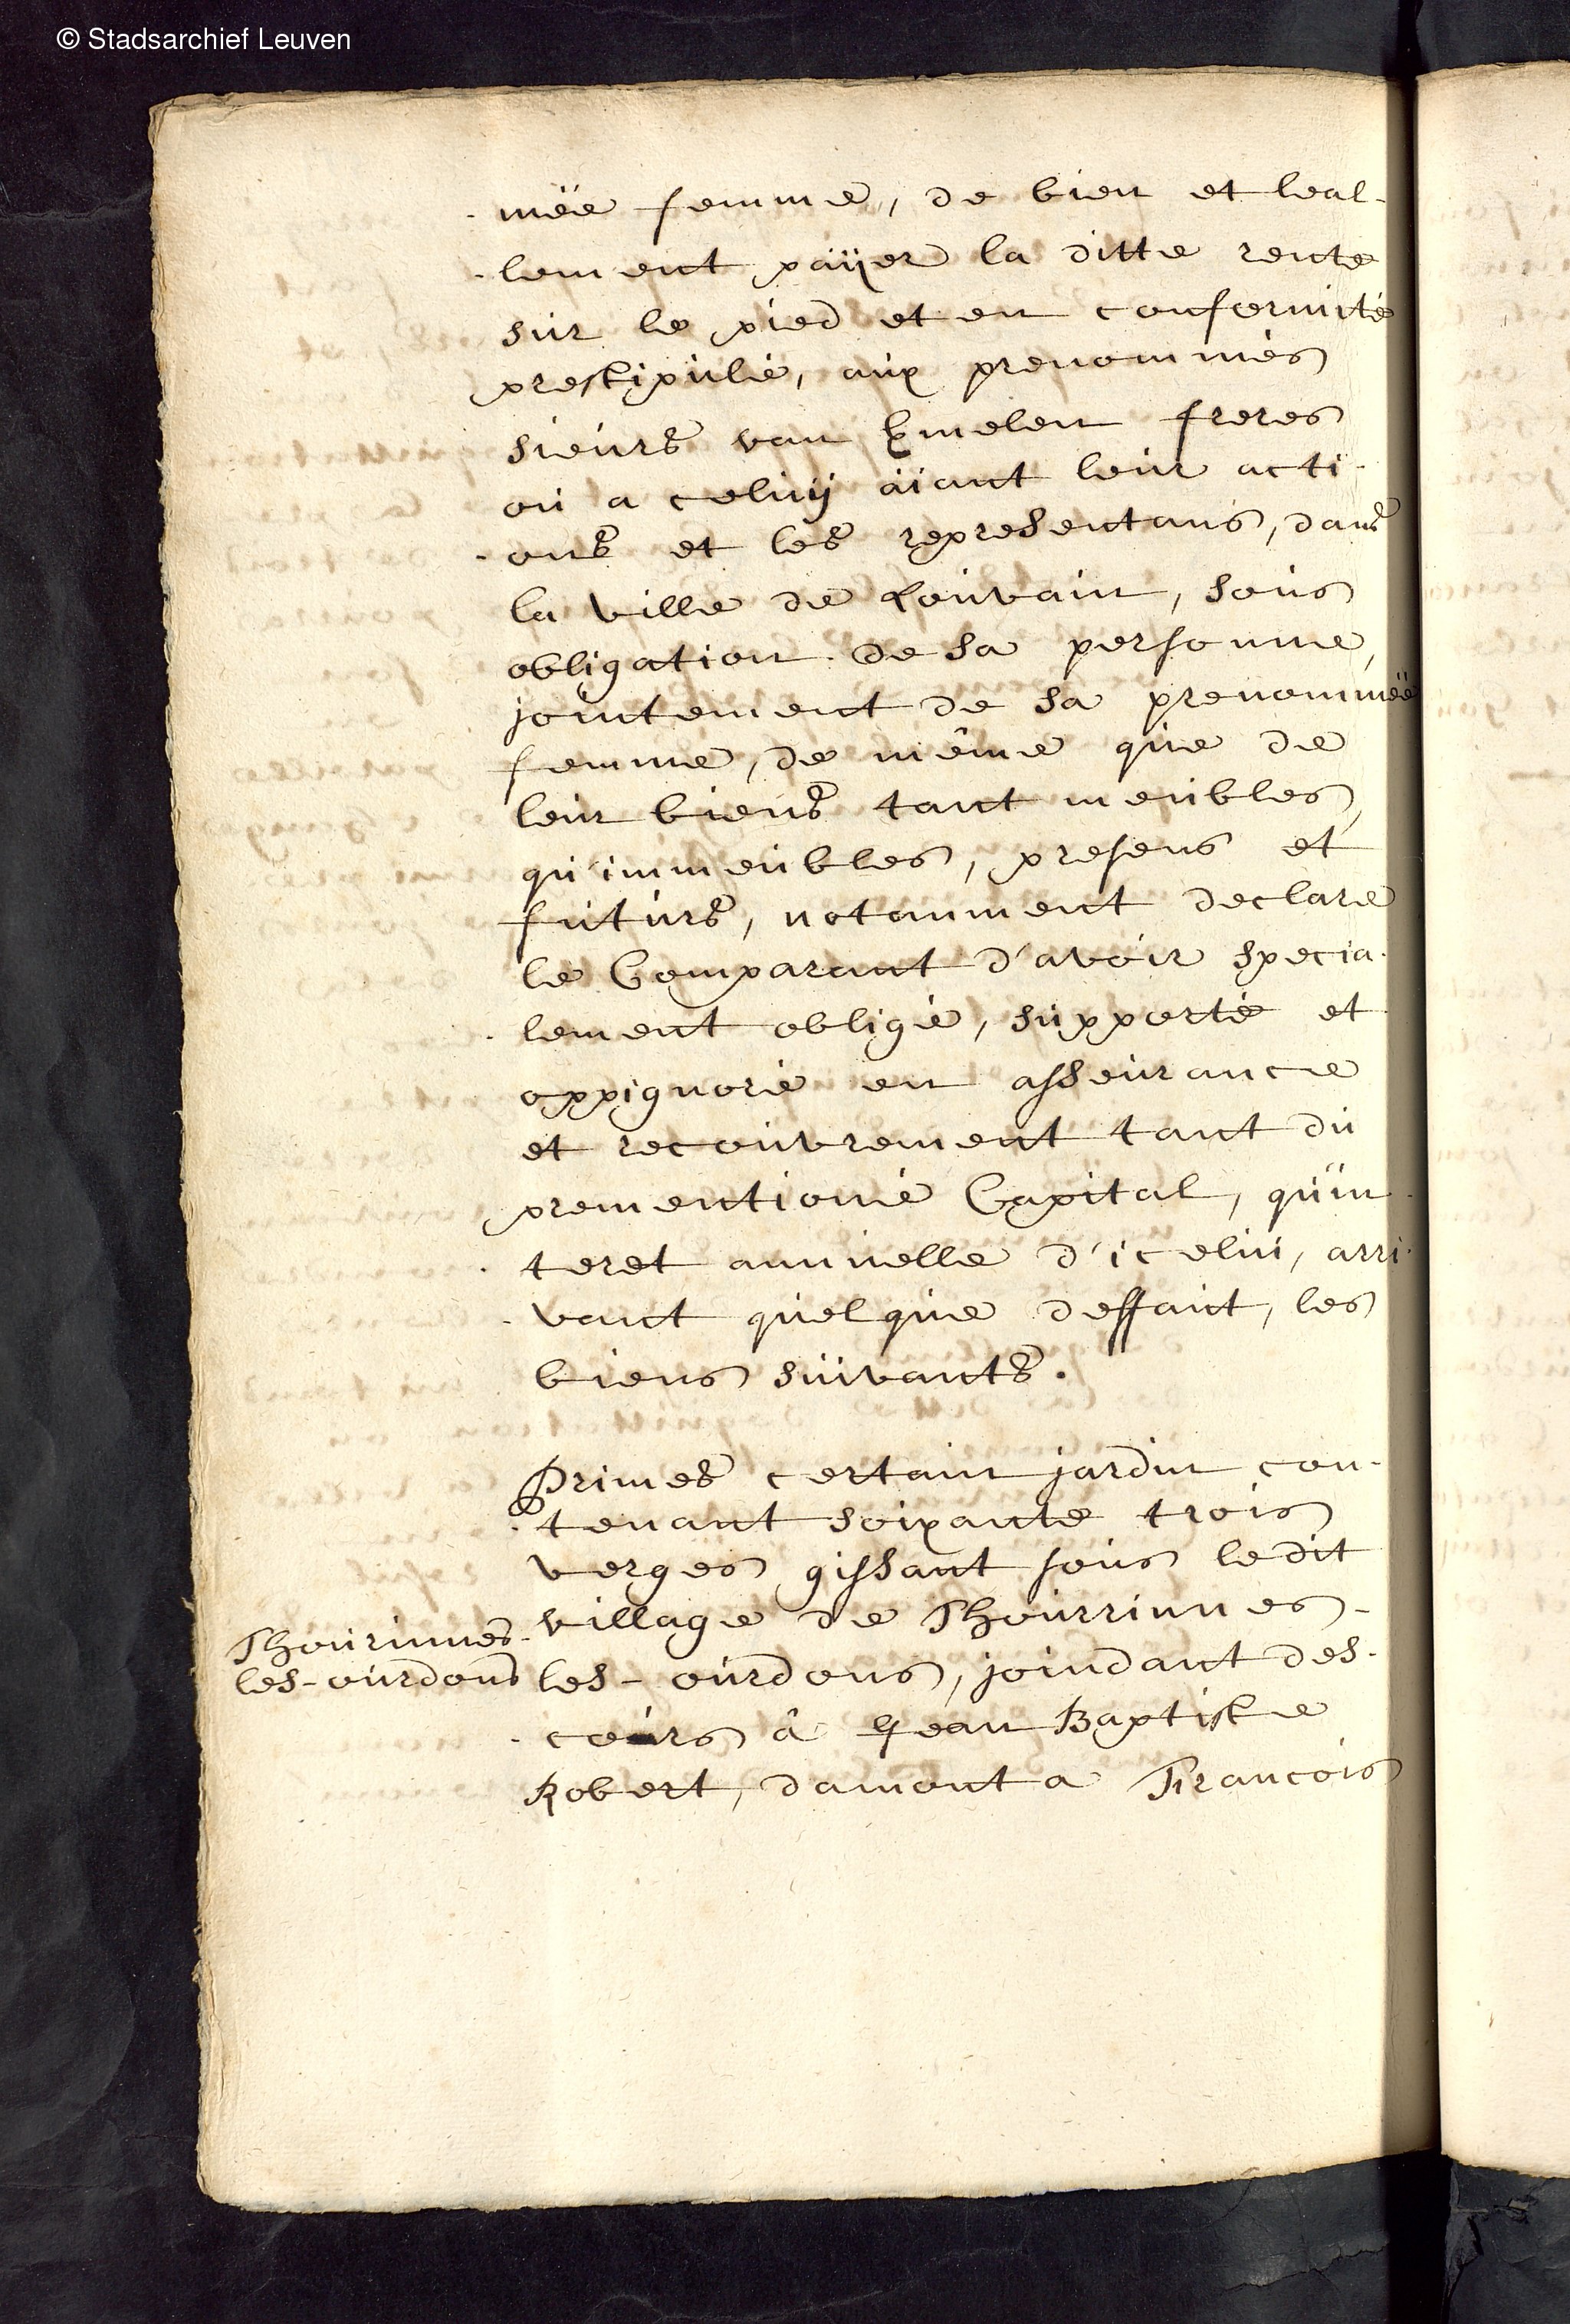 © Stadsarchief Leuven
- mëe femme, de bien et leal-
- lement paÿer la ditte rente
sur le pied et en conformité
prestipulé, aux prenommés
sieurs van Emelen freres
ou a celuÿ aÿant leur acti-
- ons et les representans, dans
la ville de Louvain, sous
obligation de sa personne,
jointement de sa prenommëe
femme, de même que de
leur biens tant meubles,
qu'immeubles, presens et
futurs, notamment declare
le Comparant d'avoir specia-
- lement obligé, supporté et
oppignoré en asseurance
et recouvrement tant du
prementioné Capital, qu'in-
- teret annuelle d'icelui, arri-
- vant quelque deffaut, les
biens suivants.
Primes certain jardin con-
- tenant soixante trois
verges gissant sous ledit
village de Thourinnes-
Thourinnes-
les-ourdons
les-ourdons, joindant des-
- cours â Jean Baptiste
Robert, damont a François